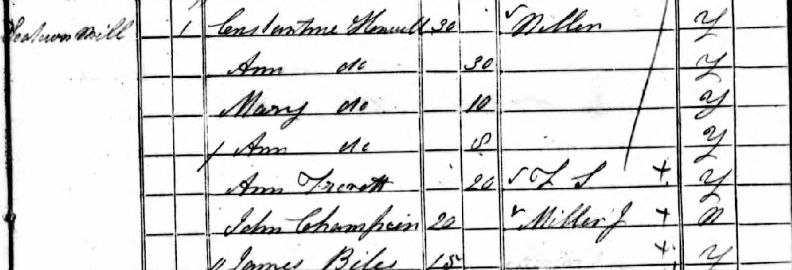 Seatown Mill 1 Constantine Honeill 30 Miller Y
Ann do 30 Y
Mary do 10 Y
Ann do 8 Y
Ann Trevett 20 F S + Y
John Champion 20 Miller J + N
James Biles 15 + Y